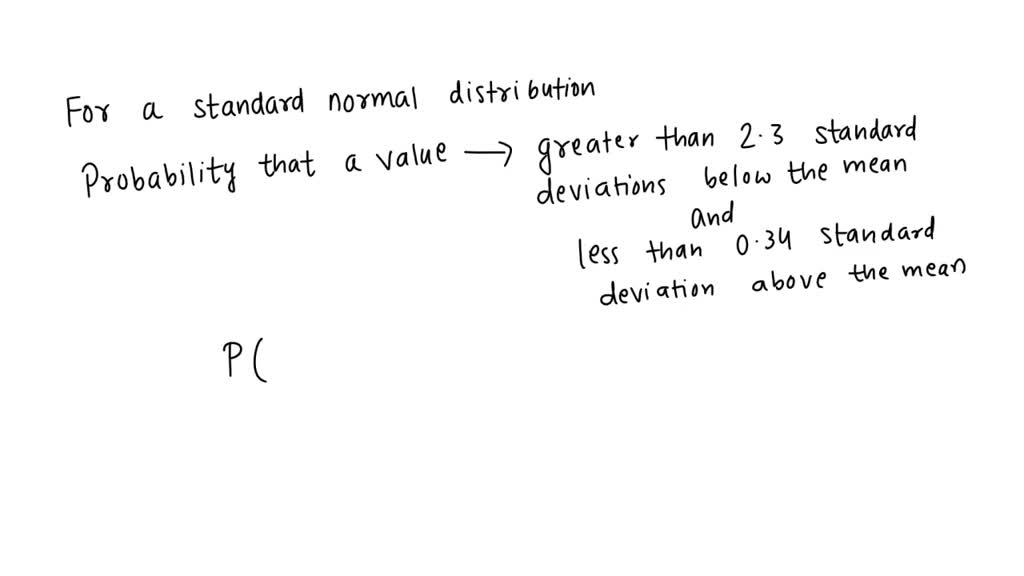 For a standard normal distribution
Probability that a value → greater than 2.3 standard
deviations below the mean
and
less than 0.34 standard
deviation above the mean
P(